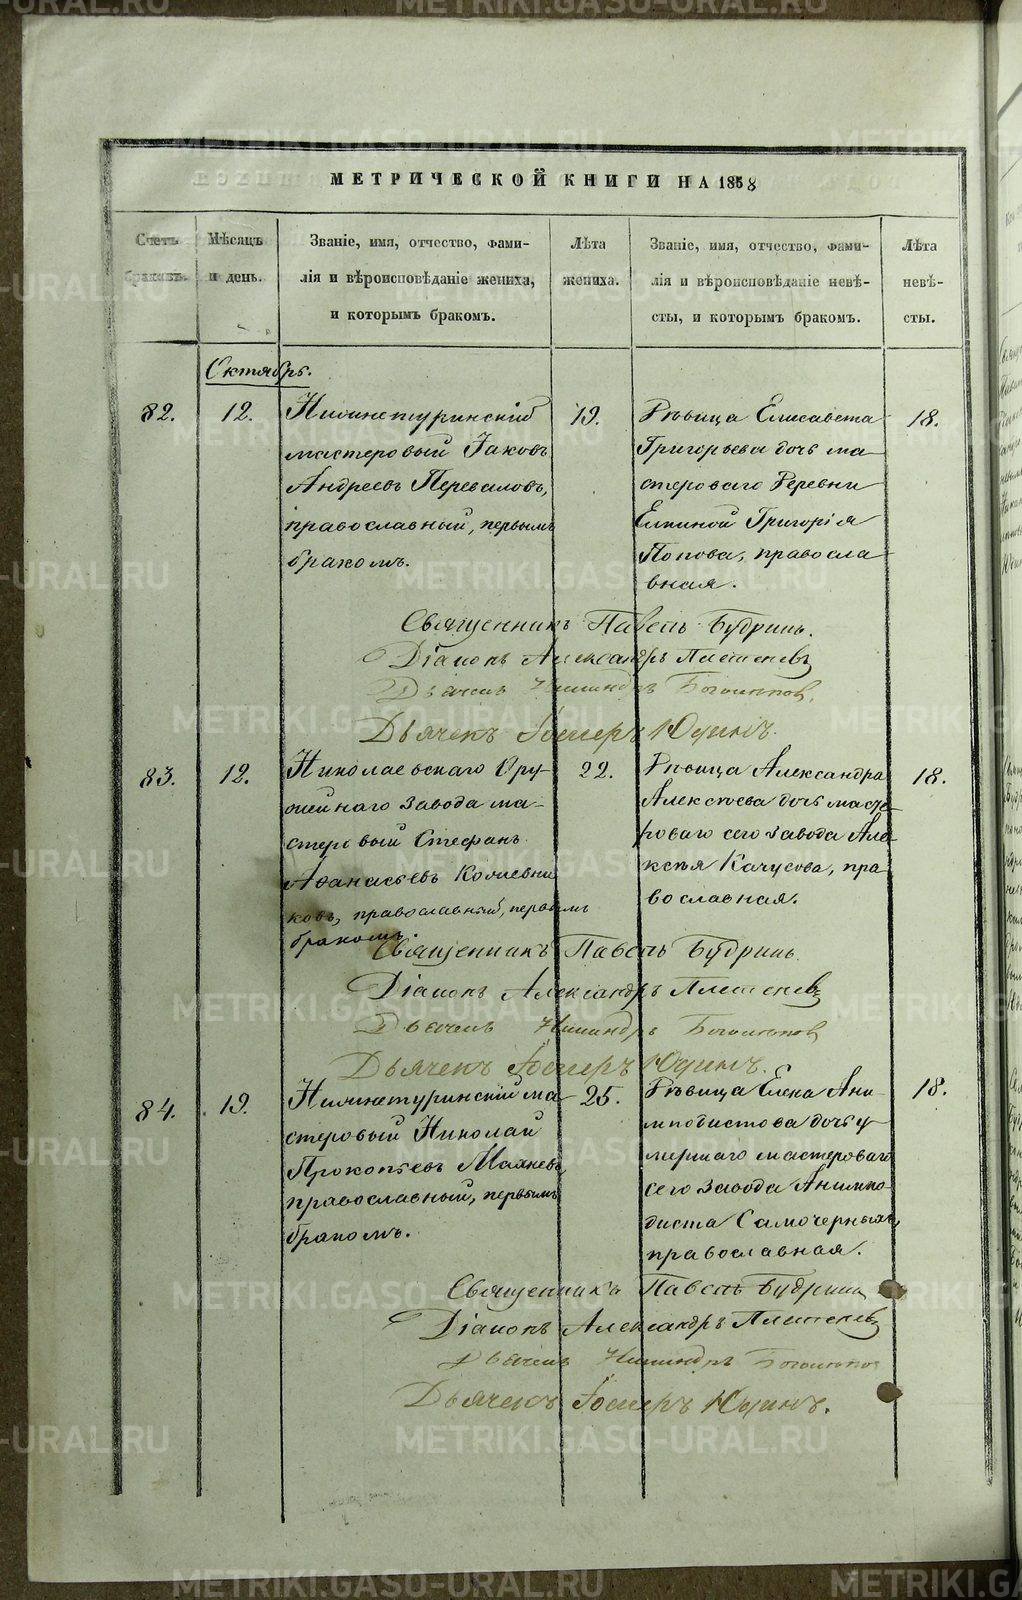 МЕТРИЧЕСКОЙ КНИГИ НА 1858
Счетъ браковъ.
Мѣсяцъ и день.
Званіе, имя, отчество, фами-
лія и вѣроисповѣданіе жениха,
и которымъ бракомъ.
Лѣта жениха.
Званіе, имя, отчество, фами-
лія и вѣроисповѣданіе невѣ-
сты, и которымъ бракомъ.
Лѣта невѣ-
сты.
Октябрь.
82.
12.
Нижнетуринскій
мастеровый Іаковъ
Андреевъ Переваловъ,
православный, первымъ
бракомъ.
19.
Дѣвица Елисавета
Григорьева дочь ма-
стероваго деревни
Елкиной Григорія
Попова, правосла-
вная.
18.
Священникъ Павелъ Будринъ.
Діаконъ Александръ Плетеневъ
Дьячекъ Никандръ
Дьячекъ Юдинъ.
83.
12.
Николаевскаго Ору-
жейнаго завода ма-
стеровый Стефанъ
Аѳанасьевъ Кожевни-
ковъ, православный, первымъ
бракомъ.
22.
Дѣвица Александра
Алексѣева дочь масте-
роваго сего завода Але-
ксѣя Качусова, пра-
вославная.
18.
Священникъ Павелъ Будринъ.
Діаконъ Александръ Плетеневъ
Дьячекъ Никандръ
Дьячекъ Юдинъ.
84.
19.
Нижнетуринскій ма-
стеровый Николай
Прокопьевъ Маяневъ,
православный, первымъ
бракомъ.
25.
Дѣвица Елена Ани-
мподистова дочь у-
мершаго мастероваго
сего завода Анимпо-
диста Самочерныхъ,
православная.
18.
Священникъ Павелъ Будринъ
Діаконъ Александръ Плетеневъ
Дьячекъ Никандръ
Дьячекъ Юдинъ.
METRIKI.GASO-URAL.RU